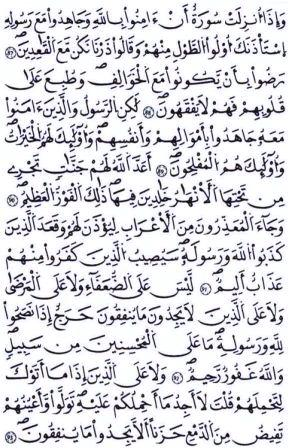 وَإِذَا أُنزِلَتْ سُورَةٌ أَنْ ءَامِنُوا بِاللَّهِ وَجَاهِدُوا مَعَ رَسُولِهِ
اِسْتَأْذَنَكَ أُولُوا الطَّوْلِ مِنْهُمْ وَقَالُوا ذَرْنَا نَكُن مَّعَ الْقَٰعِدِينَ
رَضُوا بِأَن يَكُونُوا مَعَ الْخَوَالِفِ وَطُبِعَ عَلَىٰ
قُلُوبِهِمْ فَهُمْ لَا يَفْقَهُونَ لَٰكِنِ الرَّسُولُ وَالَّذِينَ ءَامَنُوا
مَعَهُ جَٰهَدُوا بِأَمْوَٰلِهِمْ وَأَنفُسِهِمْ وَأُوْلَٰئِكَ لَهُمُ الْخَيْرَٰتُ
وَأُوْلَٰئِكَ هُمُ الْمُفْلِحُونَ أَعَدَّ اللَّهُ لَهُمْ جَنَّٰتٍ تَجْرِي
مِن تَحْتِهَا الْأَنْهَٰرُ خَٰلِدِينَ فِيهَا ذَٰلِكَ الْفَوْزُ الْعَظِيمُ
وَجَاءَ الْمُعَذِّرُونَ مِنَ الْأَعْرَابِ لِيُؤْذَنَ لَهُمْ وَقَعَدَ الَّذِينَ
كَذَبُوا اللَّهَ وَرَسُولَهُ سَيُصِيبُ الَّذِينَ كَفَرُوا مِنْهُمْ
عَذَابٌ أَلِيمٌ لَّيْسَ عَلَى الضُّعَفَاءِ وَلَا عَلَى الْمَرْضَىٰ
وَلَا عَلَى الَّذِينَ لَا يَجِدُونَ مَا يُنفِقُونَ حَرَجٌ إِذَا نَصَحُوا
لِلَّهِ وَرَسُولِهِ مَا عَلَى الْمُحْسِنِينَ مِن سَبِيلٍ
وَاللَّهُ غَفُورٌ رَّحِيمٌ وَلَا عَلَى الَّذِينَ إِذَا مَا أَتَوْكَ
لِتَحْمِلَهُمْ قُلْتَ لَا أَجِدُ مَا أَحْمِلُكُمْ عَلَيْهِ تَوَلَّوا وَّأَعْيُنُهُمْ
تَفِيضُ مِنَ الدَّمْعِ حَزَنًا أَلَّا يَجِدُوا مَا يُنفِقُونَ